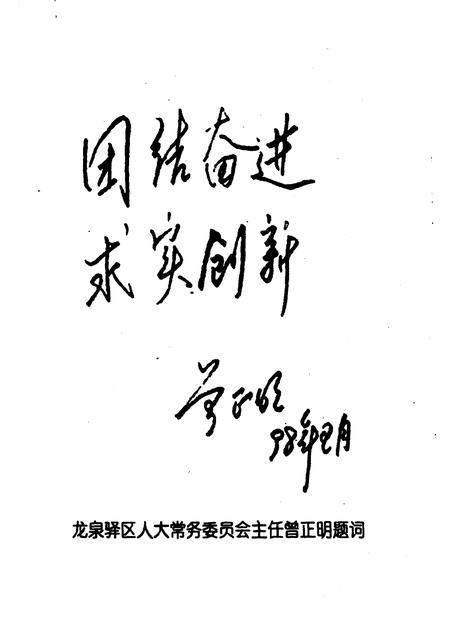 团结奋进
求实创新
曾正明
98年四月
龙泉驿区人大常务委员会主任曾正明题词